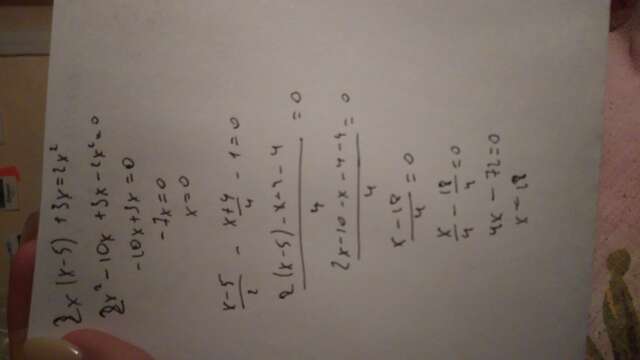 2x(x-5)+3x=2x²
2x²-10x+3x-2x²=0
-10x+3x=0
-7x=0
x=0
(x-5)/2 - (x+4)/4 - 1=0
(2(x-5)-x-4-4)/4 =0
(2x-10-x-4-4)/4 =0
(x-18)/4 =0
x/4 - 18/4 =0
4x-72=0
x=18